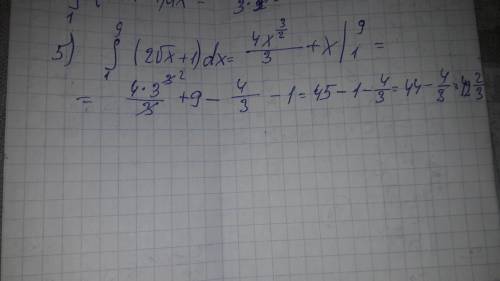 5) ∫₁⁹ (2√x+1)dx = 4x^(3/2)/3 + x |₁⁹ =
= 4·3^(3·2)/3 + 9 - 4/3 - 1 = 45 - 1 - 4/3 = 44 - 4/3 = 42 2/3